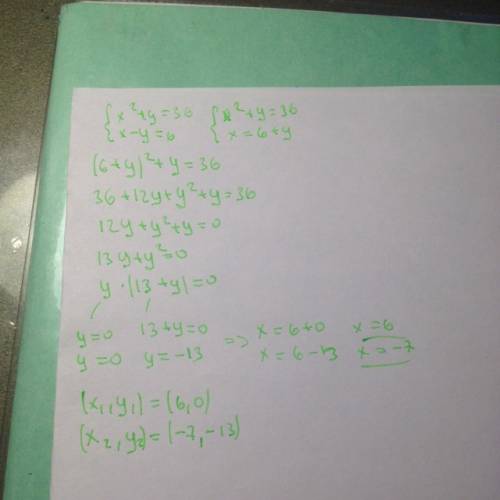 {x²+y=36 {x²+y=36
{x-y=6 {x=6+y
(6+y)²+y=36
36+12y+y²+y=36
12y+y²+y=0
13y+y²=0
y·(13+y)=0
y=0 13+y=0 => x=6+0 x=6
y=0 y=-13 x=6-13 x=-7
(x₁,y₁)=(6,0)
(x₂,y₂)=(-7,-13)